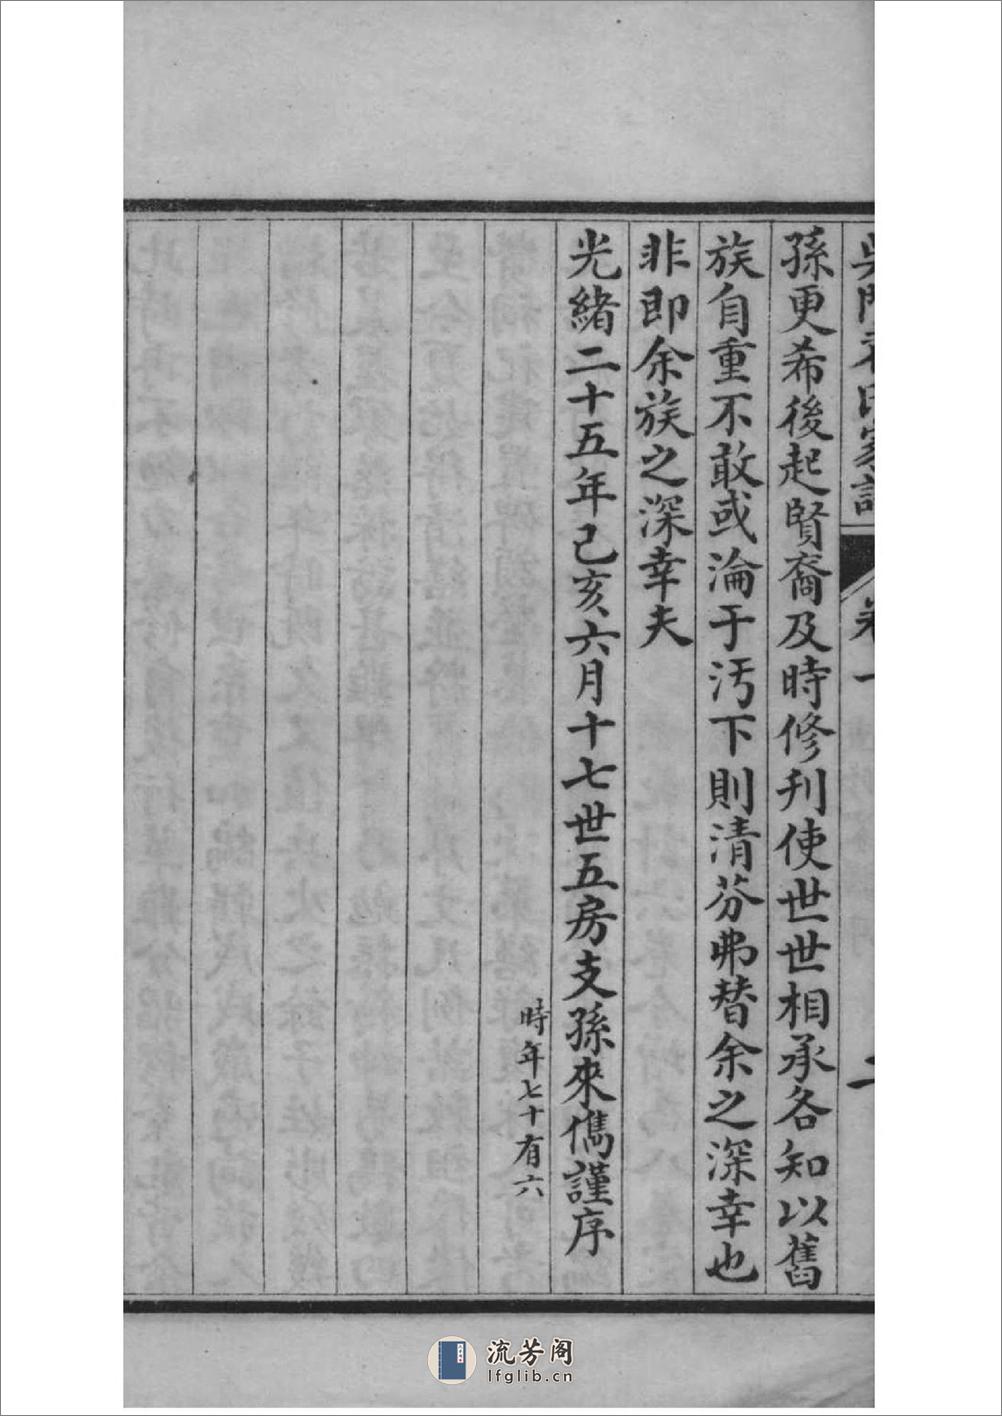 孫更希後起賢裔及時修刋使世世相承各知以舊
族自重不敢或淪于汚下則清芬弗替余之深幸也
非即余族之深幸夫
光緒二十五年己亥六月十七世五房支孫來儁謹序
時年七十有六
流芳阁
lfglib.cn